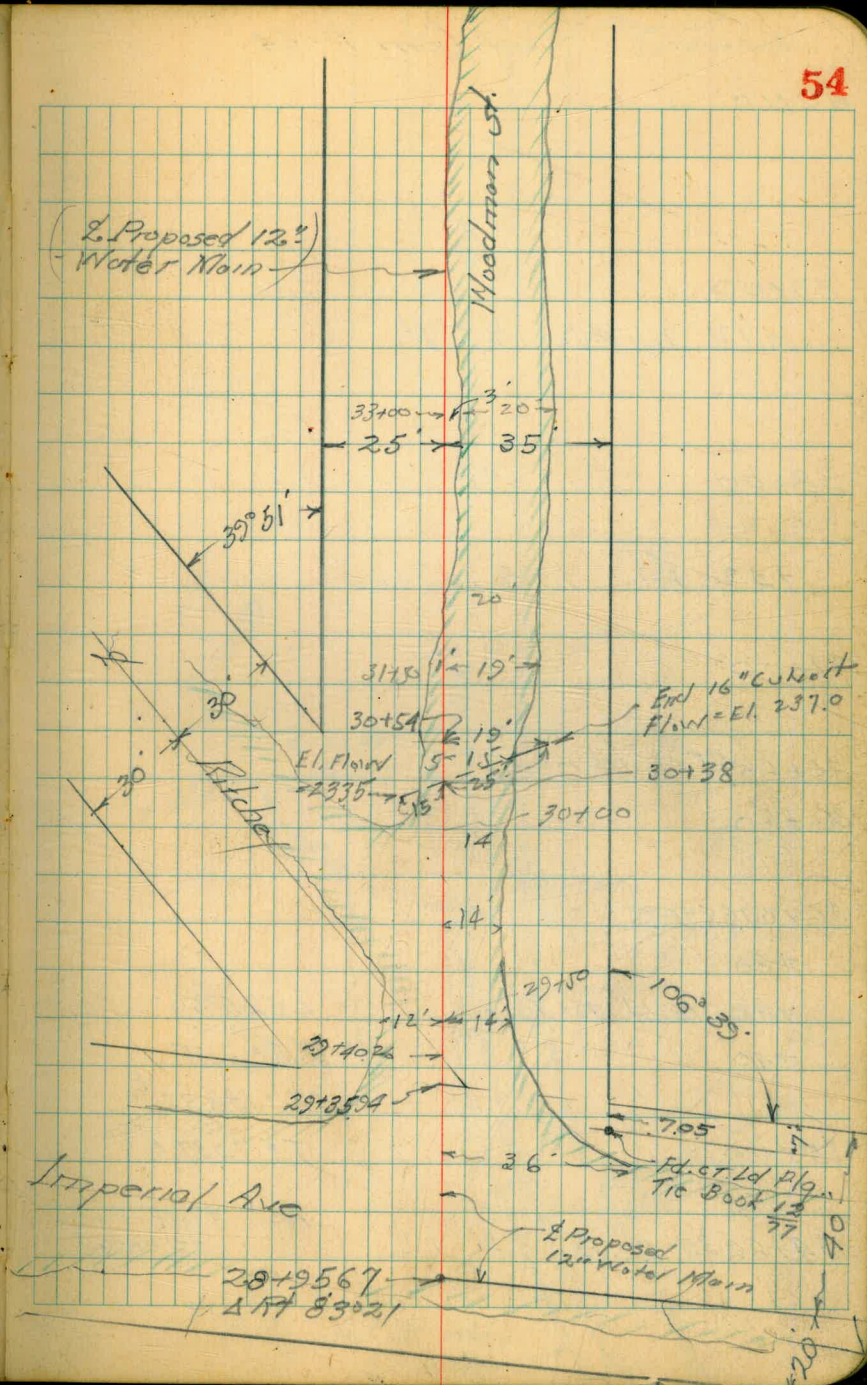 54
Woodman St.
℄ Proposed 12"
Water Main
33+00
3'
20'
25'
35'
39°51'
20'
31+50
1'
19'
30+54
19'
End 16" Culvert
Flow = El. 237.0
El. Flow
=233.5
5
15'
25'
3
15
30+38
30'
30'
Ritchey
30+00
14
14'
29+50
106°39'
12'
14'
29+40.26
29+35.94
7.05
7'
36'
Fd. cr. Ld Plg.
Tie Book 12/77
Imperial Ave
40'
℄ Proposed
12" Water Main
28+95.67
Δ Rt 83°21'
20'